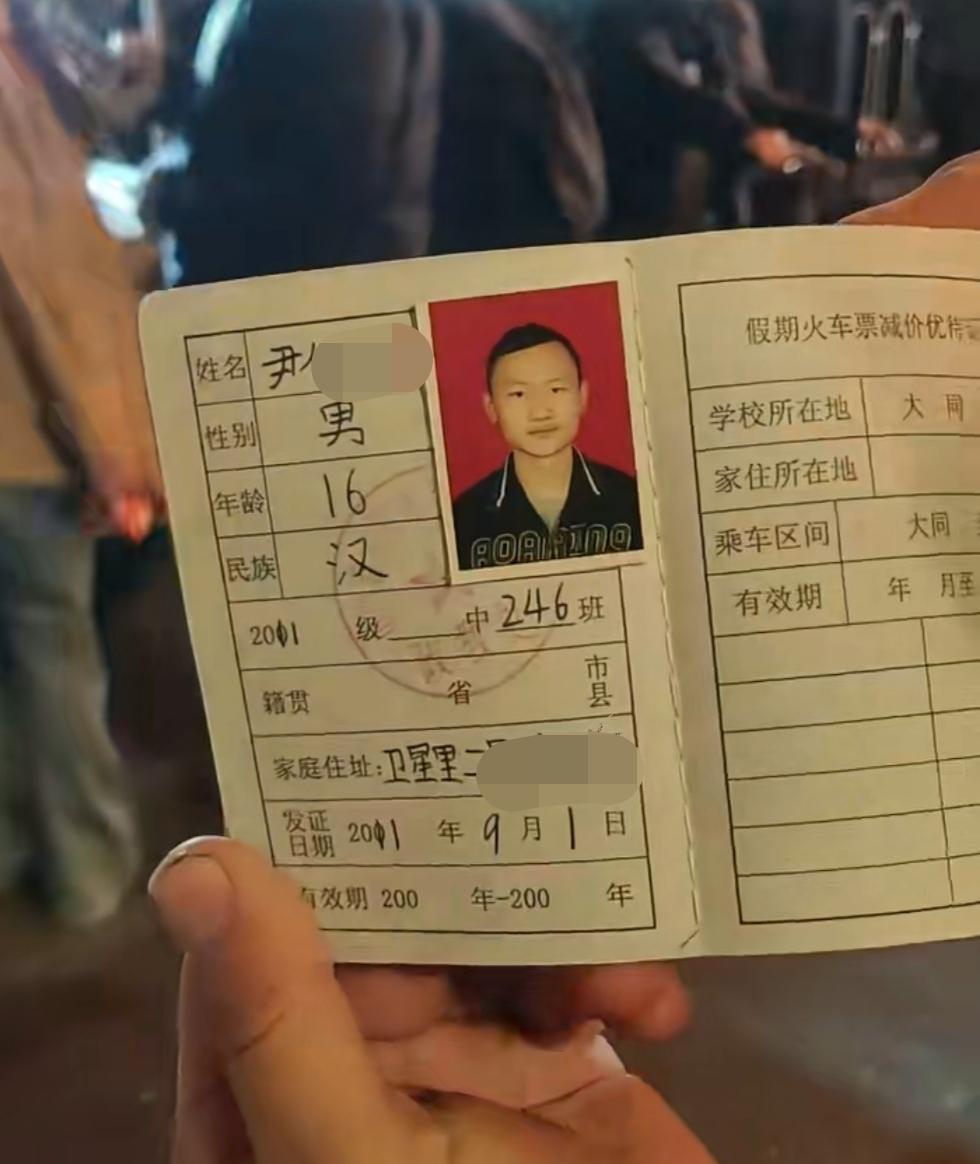 姓名 尹
性别 男
年龄 16
民族 汉
2011 级 中 246 班
籍贯 省 市县
家庭住址:卫星里二
发证日期 2011 年 9 月 1 日
有效期 200 年-200 年
假期火车票减价优待
学校所在地 大同
家住所在地
乘车区间 大同
有效期 年 月至